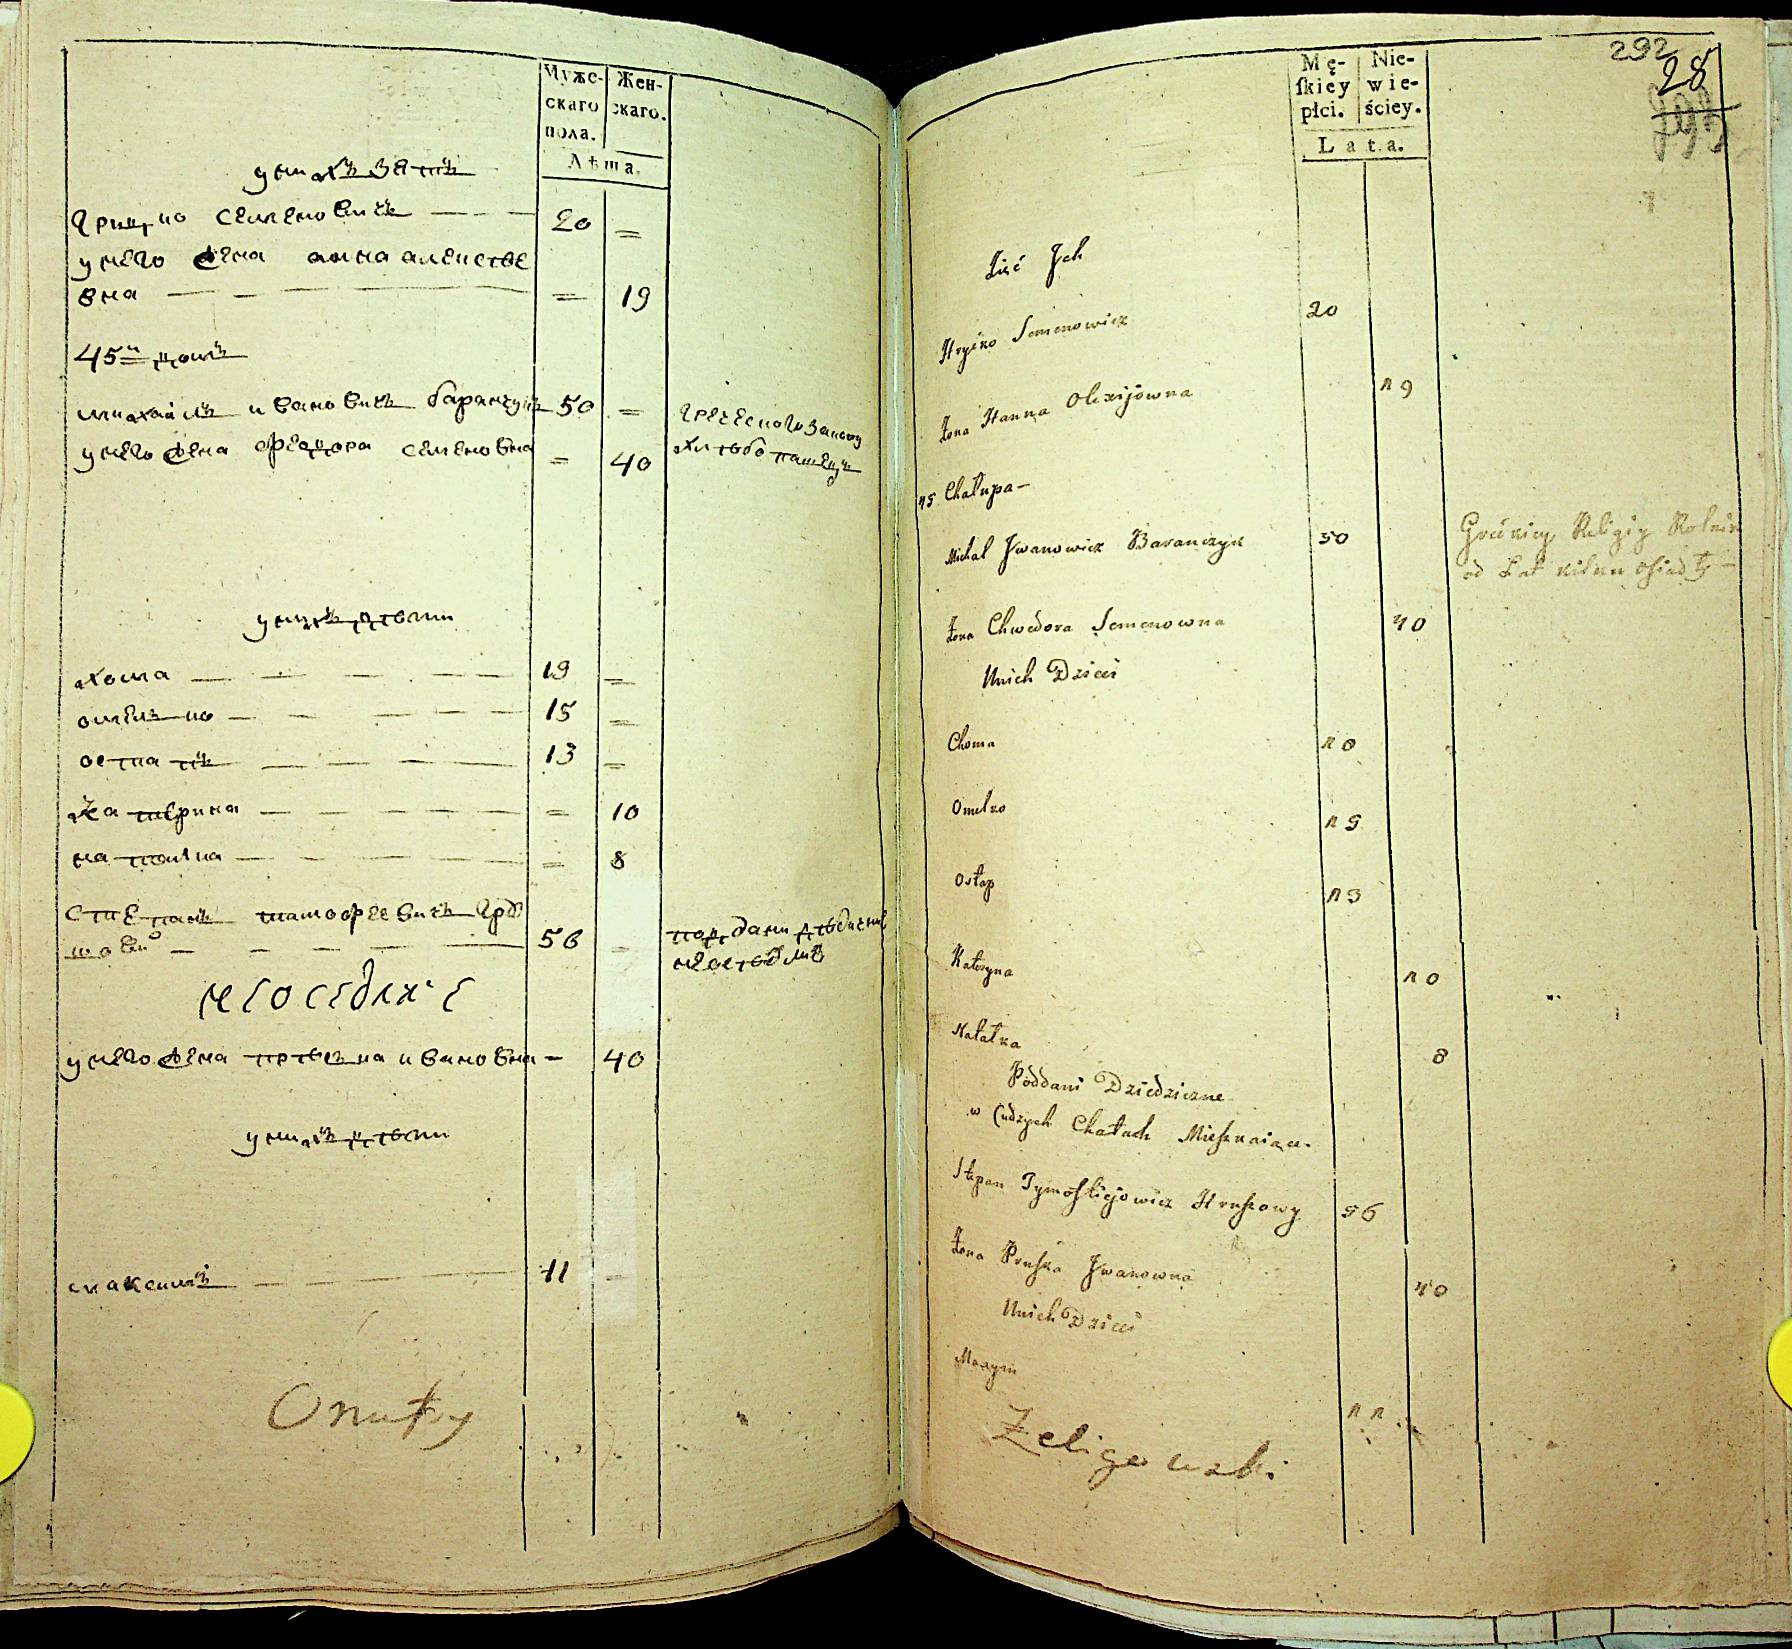 Мужескаго пола.
Женскаго.
Лѣта.
у нихъ зять
грицко семеновичъ 20 =
у него жена анна алексѣе
вна = 19
45й домъ
михайлъ ивановичъ баранчукъ 50 =
греческого закону
хлѣбопашецъ
у него жена федора семеновна = 40
у нихъ дѣти
хома 19 =
омелко 15 =
остапъ 13 =
катерина = 10
наталка = 8
степанъ тимофеевичъ
56
поддани дѣдични
неоседлие
у него жена ивановна - 40
у нихъ дѣти
максимъ 11
292
28
Męskiey płci.
Niewieściey.
Lata.
Zięć Ich
Hryćko Semenowicz 20
Żona Hanna Olexijowna 19
45 Chałupa -
Michał Jwanowicz Baranczyk 50
Greckiey Religiy Rolnik
od Lat kilku osiadły -
Żona Chwedora Semenowna 40
Unich Dzieci
Choma
Omelko 15
Ostap 13
Kateryna 10
Natałka 8
Poddani Dziedziczne
w Cudzych Chatach Mieszkaiące.
Stepan Tymofiejowicz Hruszowy 56
Żona Pruska Jwanowna 40
Unich Dzieci
Maxym 11
Zeligowski